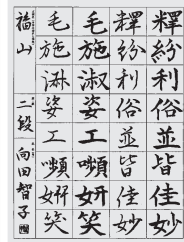 釋紛利俗並皆佳妙
釋紛利俗並皆佳妙
毛施淑姿工嚬妍笑
毛施淑姿工嚬妍笑
福山 二段 向田智子